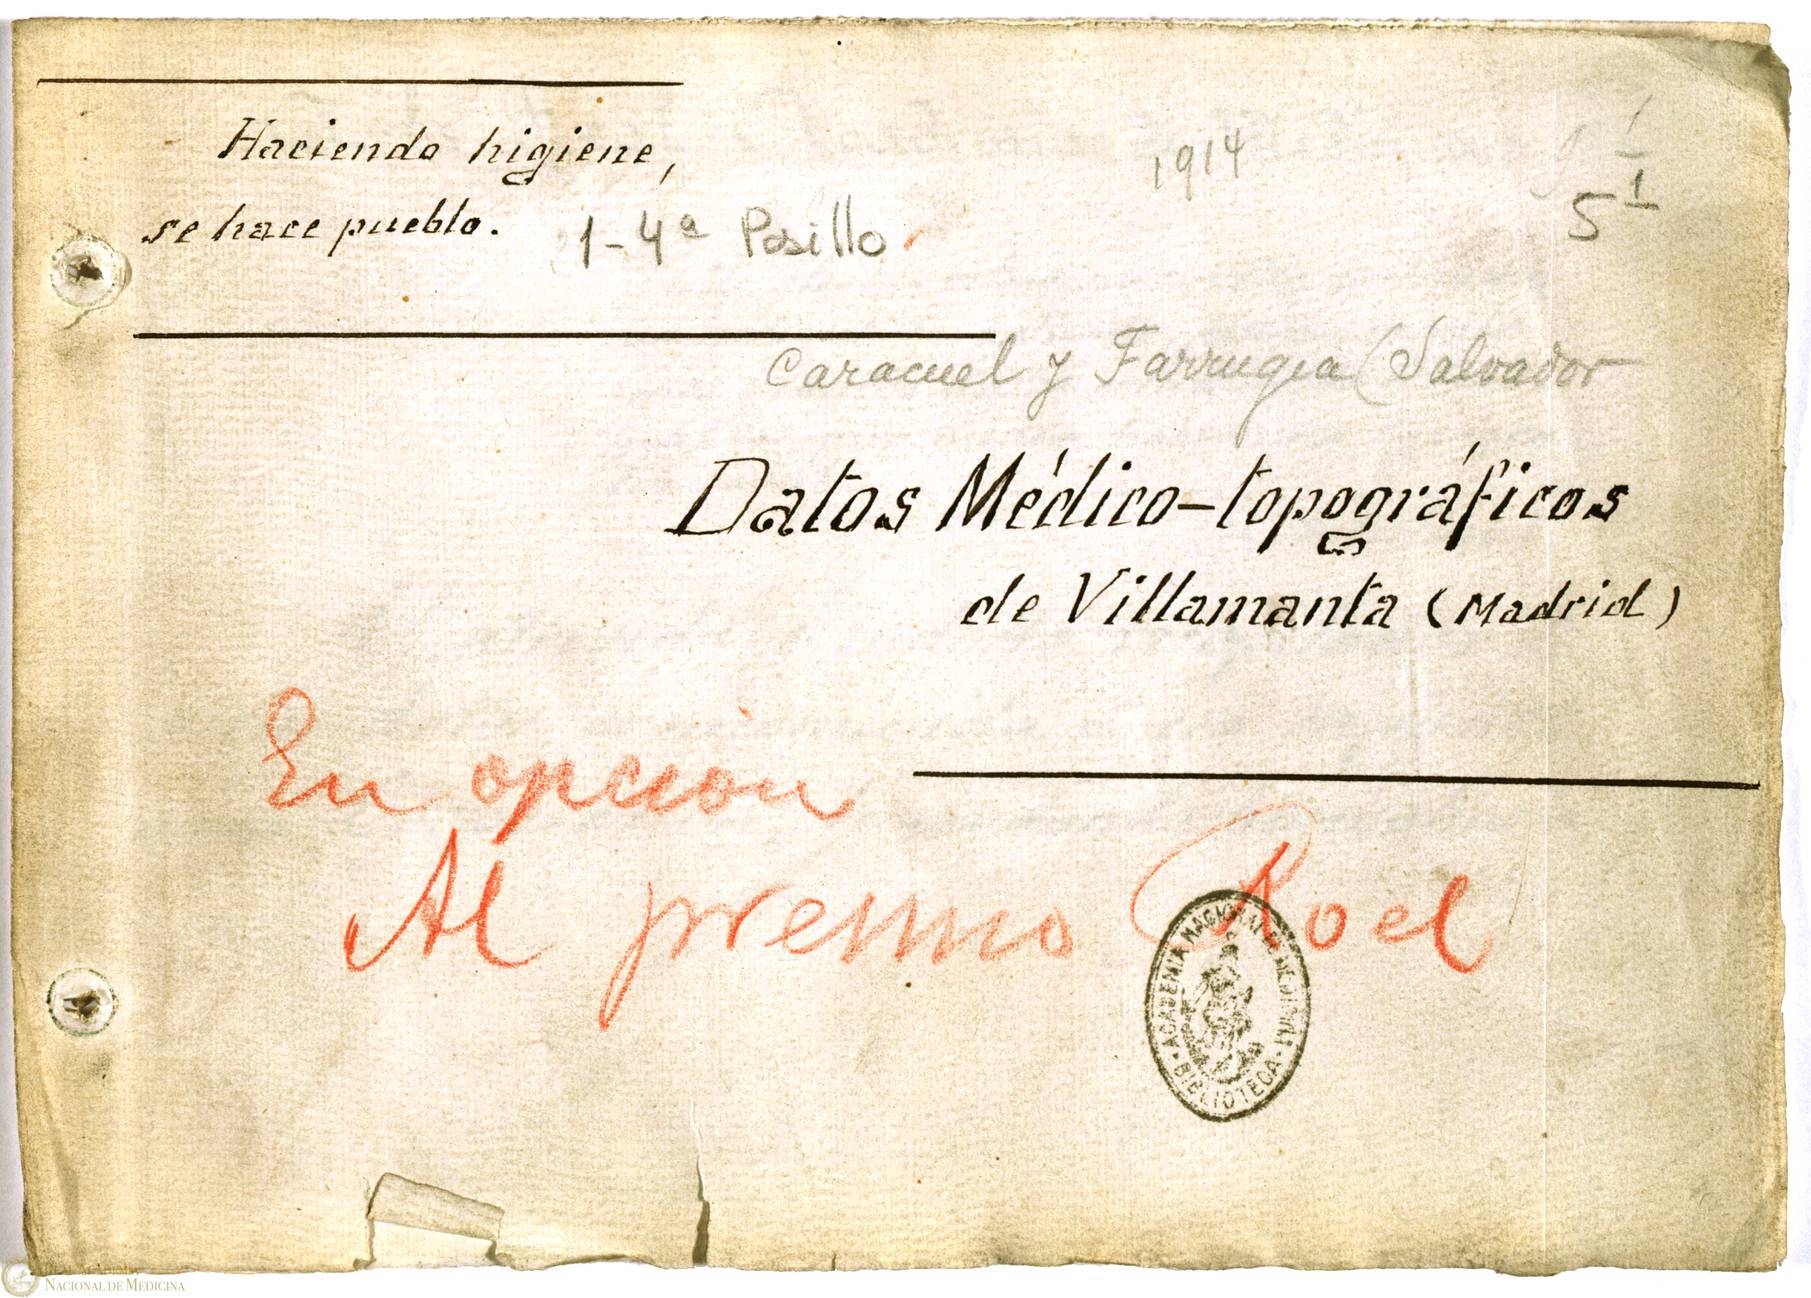 Haciendo higiene,
se hace pueblo.
1-4ª Pasillo
1914
1
1
5
Caracuel y Farrugia (Salvador
Datos Médico-topográficos
de Villamanta (Madrid)
En opcion
Al premio Roel
ACADEMIA NACIONAL DE MEDICINA
BIBLIOTECA
NACIONAL DE MEDICINA